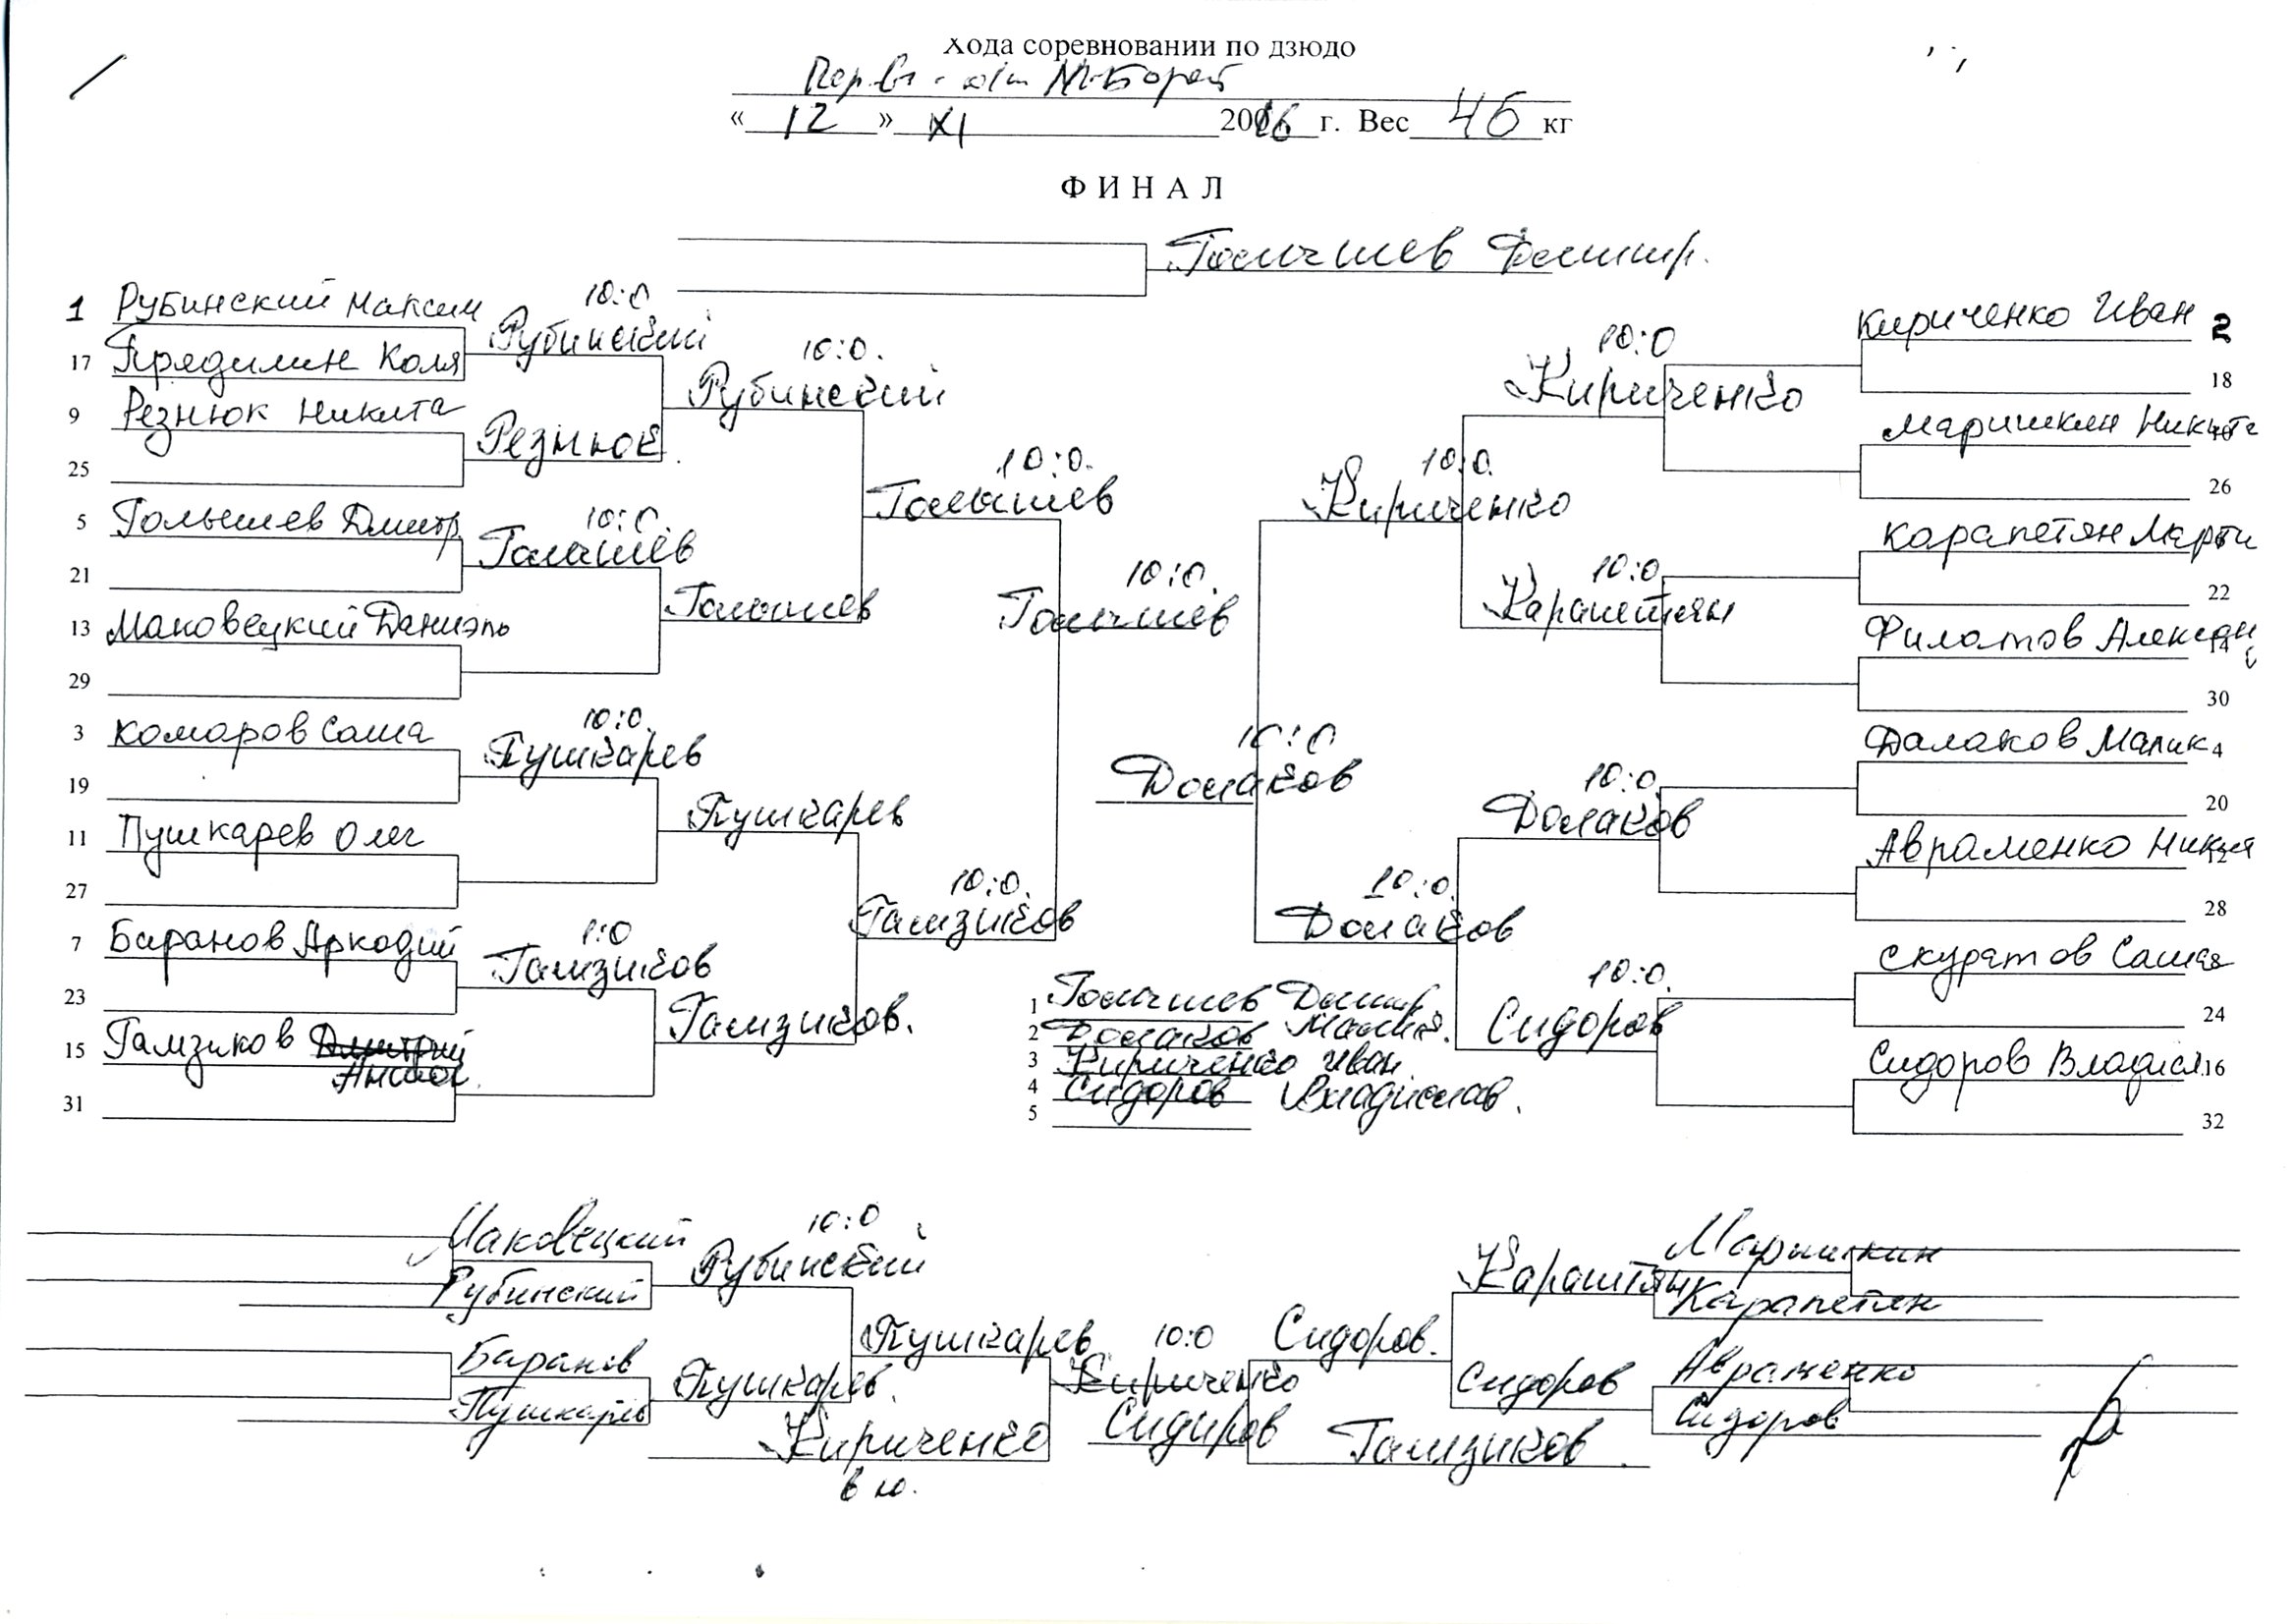 Хода соревновании по дзюдо
« 12 » XI 2016 г. Вес 46 кг
ФИНАЛ
Голышев
1 Рубинский Максим
17 Прядилин Коля
9 Резнюк Никита
25
5 Голышев Дмитр
21
13 Маковецкий Даниэль
29
3 Комаров Саша
19
11 Пушкарев Олег
27
7 Баранов Аркадий
23
15 Гамзиков
31
10:0
Рубинский
Резнюк
10:0
Голышев
10:0
Пушкарев
1:0
Гамзиков
10:0
Рубинский
Голышев
Пушкарев
Гамзиков
10:0
Голышев
10:0
Гамзиков
10:0
Голышев
10:0
Далаков
10:0
Кириченко
10:0
Далаков
10:0
Кириченко
10:0
Карапетян
10:0
Далаков
10:0
Сидоров
Кириченко Иван 2
18
Маришкин Никита
26
Карапетян Марти
22
Филатов Алексан 14
30
Далаков Малик 4
20
Авраменко Никита 12
28
Скуратов Саша 8
24
Сидоров Владисл 16
32
1 Голышев Дмитр
2 Далаков Малик
3 Кириченко Иван
4 Сидоров Владислав
5
Маковецкий
Рубинский
Баранов
Пушкарев
10:0
Рубинский
Пушкарев
Пушкарев
Кириченко
10:0
Кириченко
Сидоров
Сидоров
Гамзиков
Карапетян
Сидоров
Маришкин
Карапетян
Авраменко
Сидоров